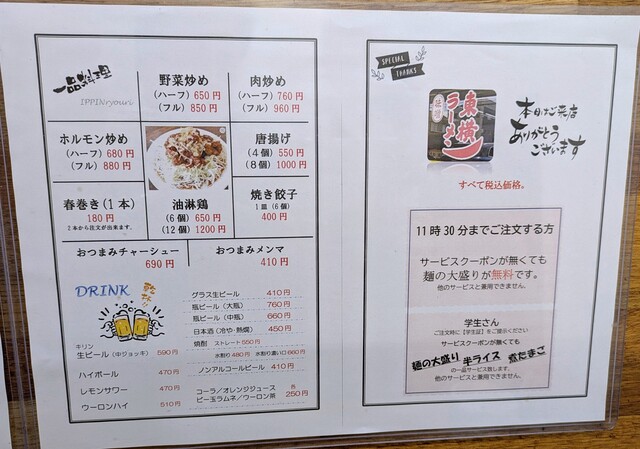 一品料理
IPPINryouri
野菜炒め
(ハーフ) 650円
(フル) 850円
肉炒め
(ハーフ) 760円
(フル) 960円
ホルモン炒め
(ハーフ) 680円
(フル) 880円
唐揚げ
(4個) 550円
(8個) 1000円
春巻き(1本)
180円
2本から注文が出来ます。
油淋鶏
(6個) 650円
(12個) 1200円
焼き餃子
1皿(6個)
400円
おつまみチャーシュー
690円
おつまみメンマ
410円
DRINK
乾杯
キリン
生ビール(中ジョッキ) 590円
ハイボール 470円
レモンサワー 470円
ウーロンハイ 510円
グラス生ビール 410円
瓶ビール(大瓶) 760円
瓶ビール(中瓶) 660円
日本酒(冷や・熱燗) 450円
焼酎 ストレート550円
水割り480円 水割り濃い口660円
ノンアルコールビール 410円
コーラ/オレンジジュース
ビー玉ラムネ/ウーロン茶
各
250円
SPECIAL
THANKS
東横
ラーメン
本日はご来店
ありがとう
ございます
すべて税込価格。
11時30分までご注文する方
サービスクーポンが無くても
麺の大盛りが無料です。
他のサービスと兼用できません。
学生さん
ご注文時に【学生証】をご提示ください
サービスクーポンが無くても
麺の大盛り 半ライス 煮たまご
の一品サービス致します。
他のサービスと兼用できません。